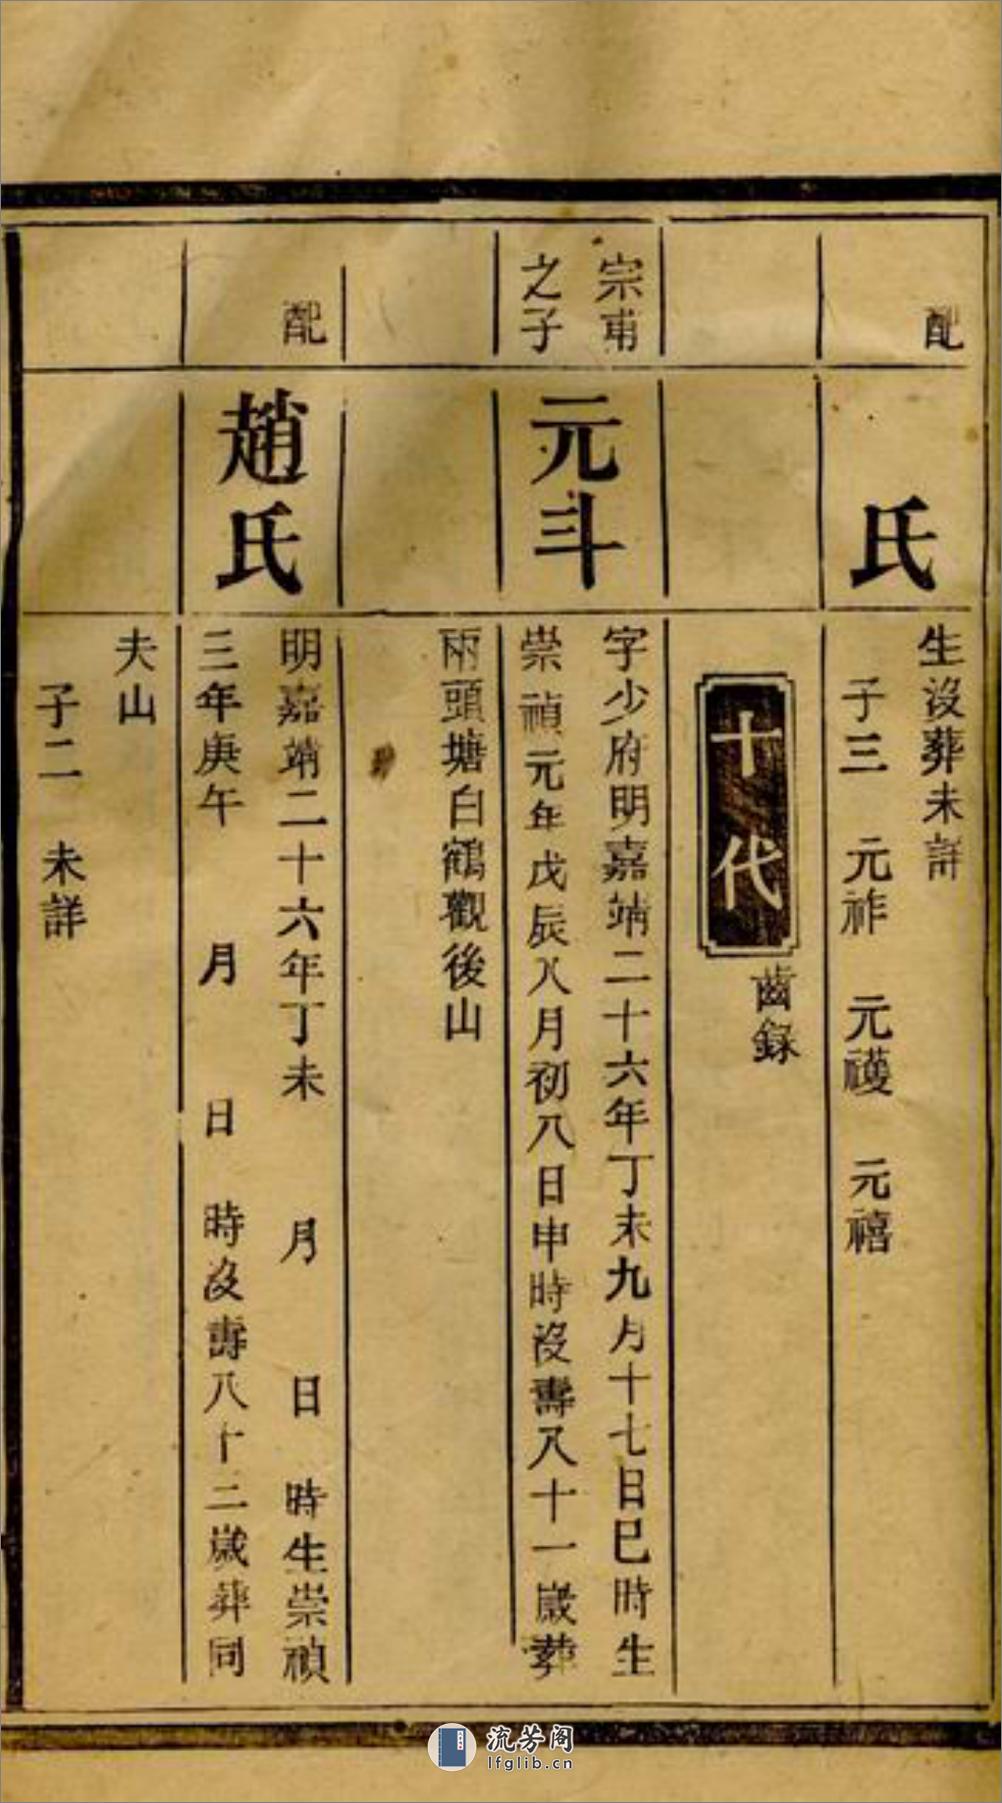 配
氏
生沒葬未詳
子三 元祚 元䕶 元禧
十代
齒錄
宗甫
之子
元斗
字少府明嘉靖二十六年丁未九月十七日巳時生
崇禎元年戊辰八月初八日申時沒壽八十一歲葬
兩頭塘白鶴觀後山
配
趙氏
明嘉靖二十六年丁未 月 日 時生崇禎
三年庚午 月 日 時沒壽八十二歲葬同
夫山
子二 未詳
流芳阁
lfglib.cn